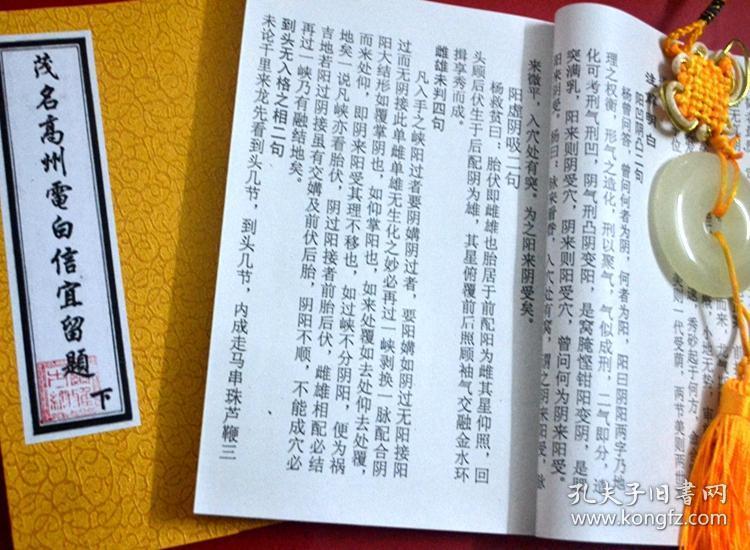 茂名高州電白信宜留題
下
阳凹阴凸二句
杨曾问答，曾问何者为阴，何者为阳，阳曰阴阳两字乃地
理之权衡，形气之造化，刑以聚气，气似成刑，二气即分，造
化可考刑气刑凹，阴气刑凸阴变阳，是窝腌悭钳阳变阴，是
突满乳，阳来则阴受穴，阴来则阳受穴，曾问何为阴来阳受。
阳来阴受。杨曰：脉来
入穴处有窝，谓之阴来阳受，
来微平，入穴处有突。为之阳来阴受矣。
阳虚阴吸二句
杨救贫曰：胎伏即雌雄也胎居于前配阳为雌其星仰照，回
头顾后伏生于后配阴为雄，其星俯覆前后照顾袖气交融金水环
揖享秀而成。
雌雄未判四句
凡入手之峡阳过者要阴媾阴过者，要阳媾如阴过无阳接阳
过而无阴接此单雌单雄无生化之妙必再过一峡剥换一脉配合阴
阳大结形如覆掌阴也，如仰掌阳也，如来处覆如去处仰去处覆，
而来处仰，即阴来阳受其理不移也，如过峡不分阴阳，便为祸
地矣一说凡峡亦看胎伏，阴过阳接者前胎后伏，雌雄相配必结
吉地若阳过阴接虽有交媾及前伏后胎，阴阳不顺，不能成穴必
再过一峡乃有融结地矣。
到头无入格之相二句
未论千里来龙先看到头几节，到头几节，内成走马串珠芦鞭三
孔夫子旧书网
www.kongfz.com